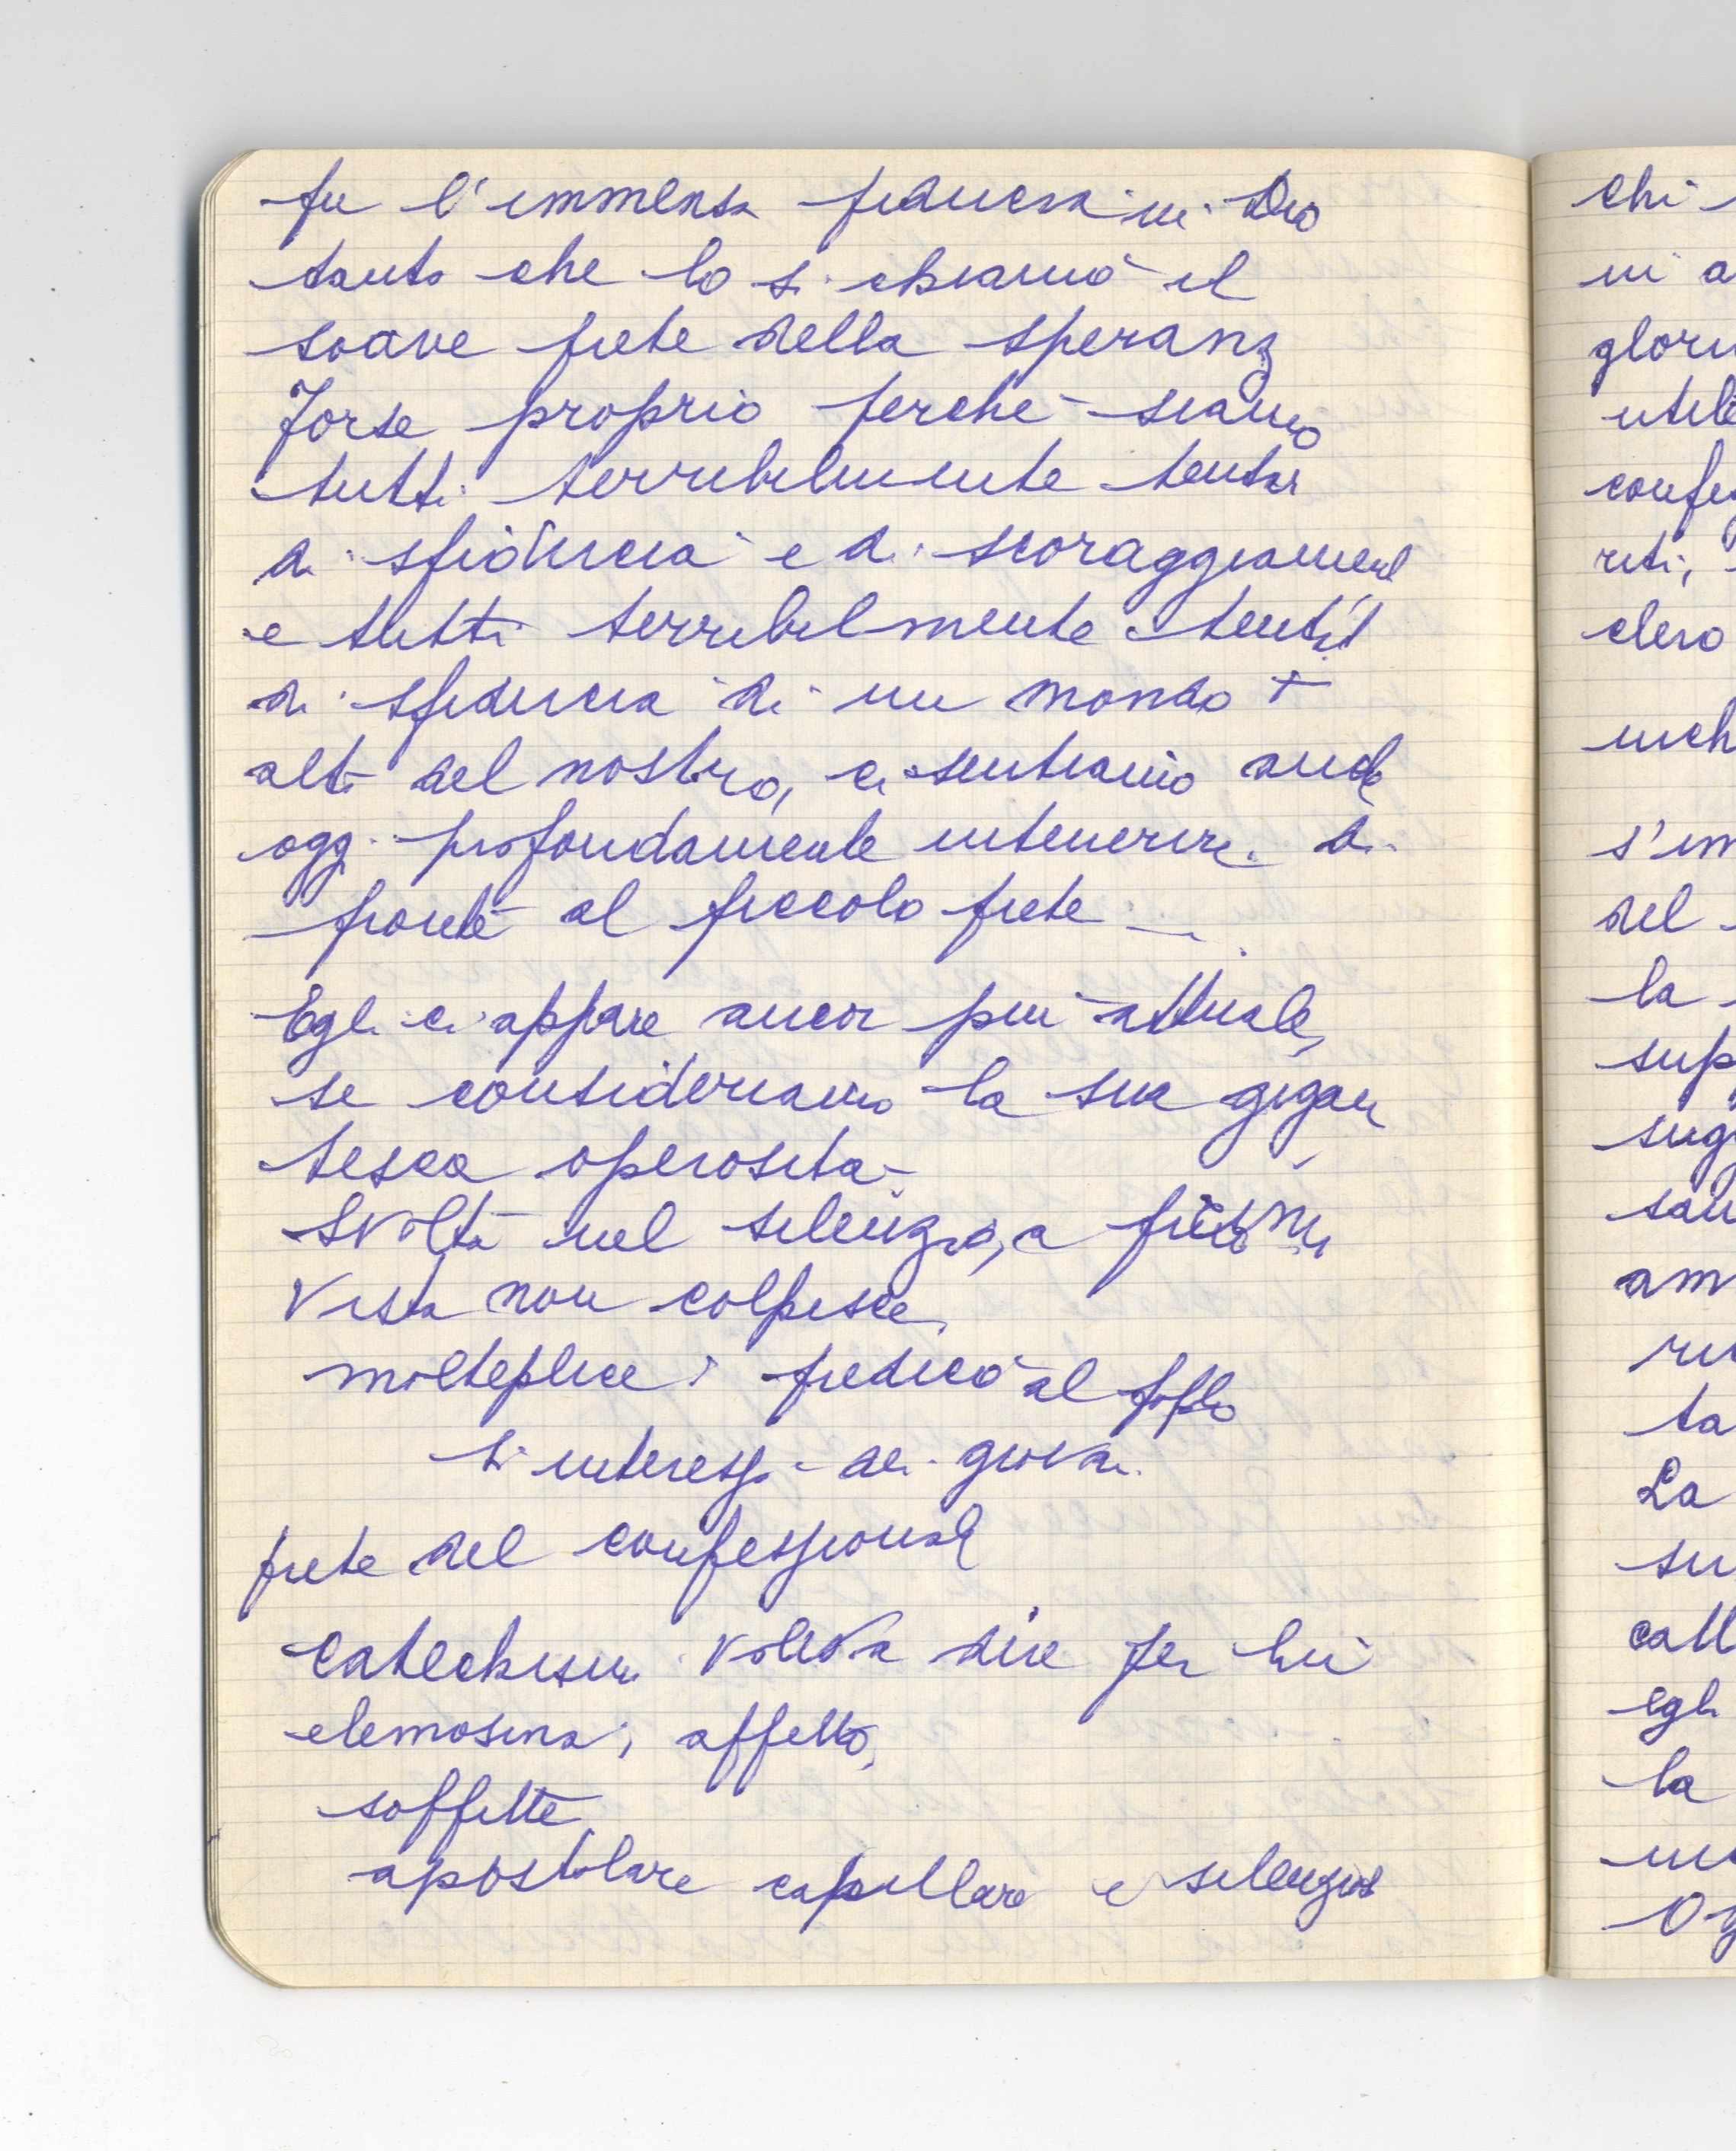 fu l'immensa fiducia in Dio
tanto che lo si chiamò il
soave prete della speranz
Forse proprio perchè siamo
tutti terribilmente tentati
di sfiducia e di scoraggiament
e tutti terribilmente tentati
di sfiducia di un mondo +
alto del nostro, ci sentiamo anche
oggi profondamente intenerire di
fronte al piccolo prete
Egli ci appare ancor più attuale,
se consideriamo la sua gigan
tesca operosità
Svolta nel silenzio, a prima
vista non colpisce,
molteplice: predicò al popolo
si interessò dei giovani
prete del confessionale
Catechismo voleva dire per lui
elemosina, affetto,
soffitte
apostolare capillare e silenzios
chi
in a
glori
utile
confe
riti,
clero
inch
s'im
del
la
sup
sug
san
am
ri
ta
La
su
catt
egli
la
Og